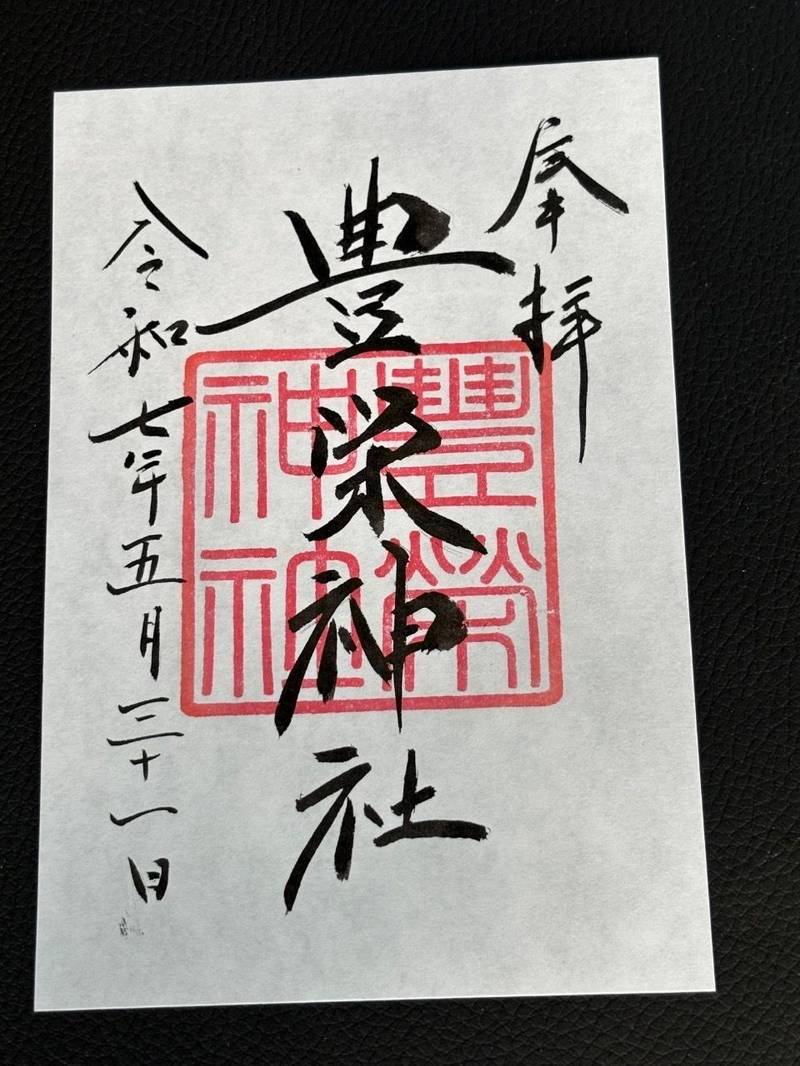 奉拝
豊栄神社
豐榮
神社
令和七年五月三十一日